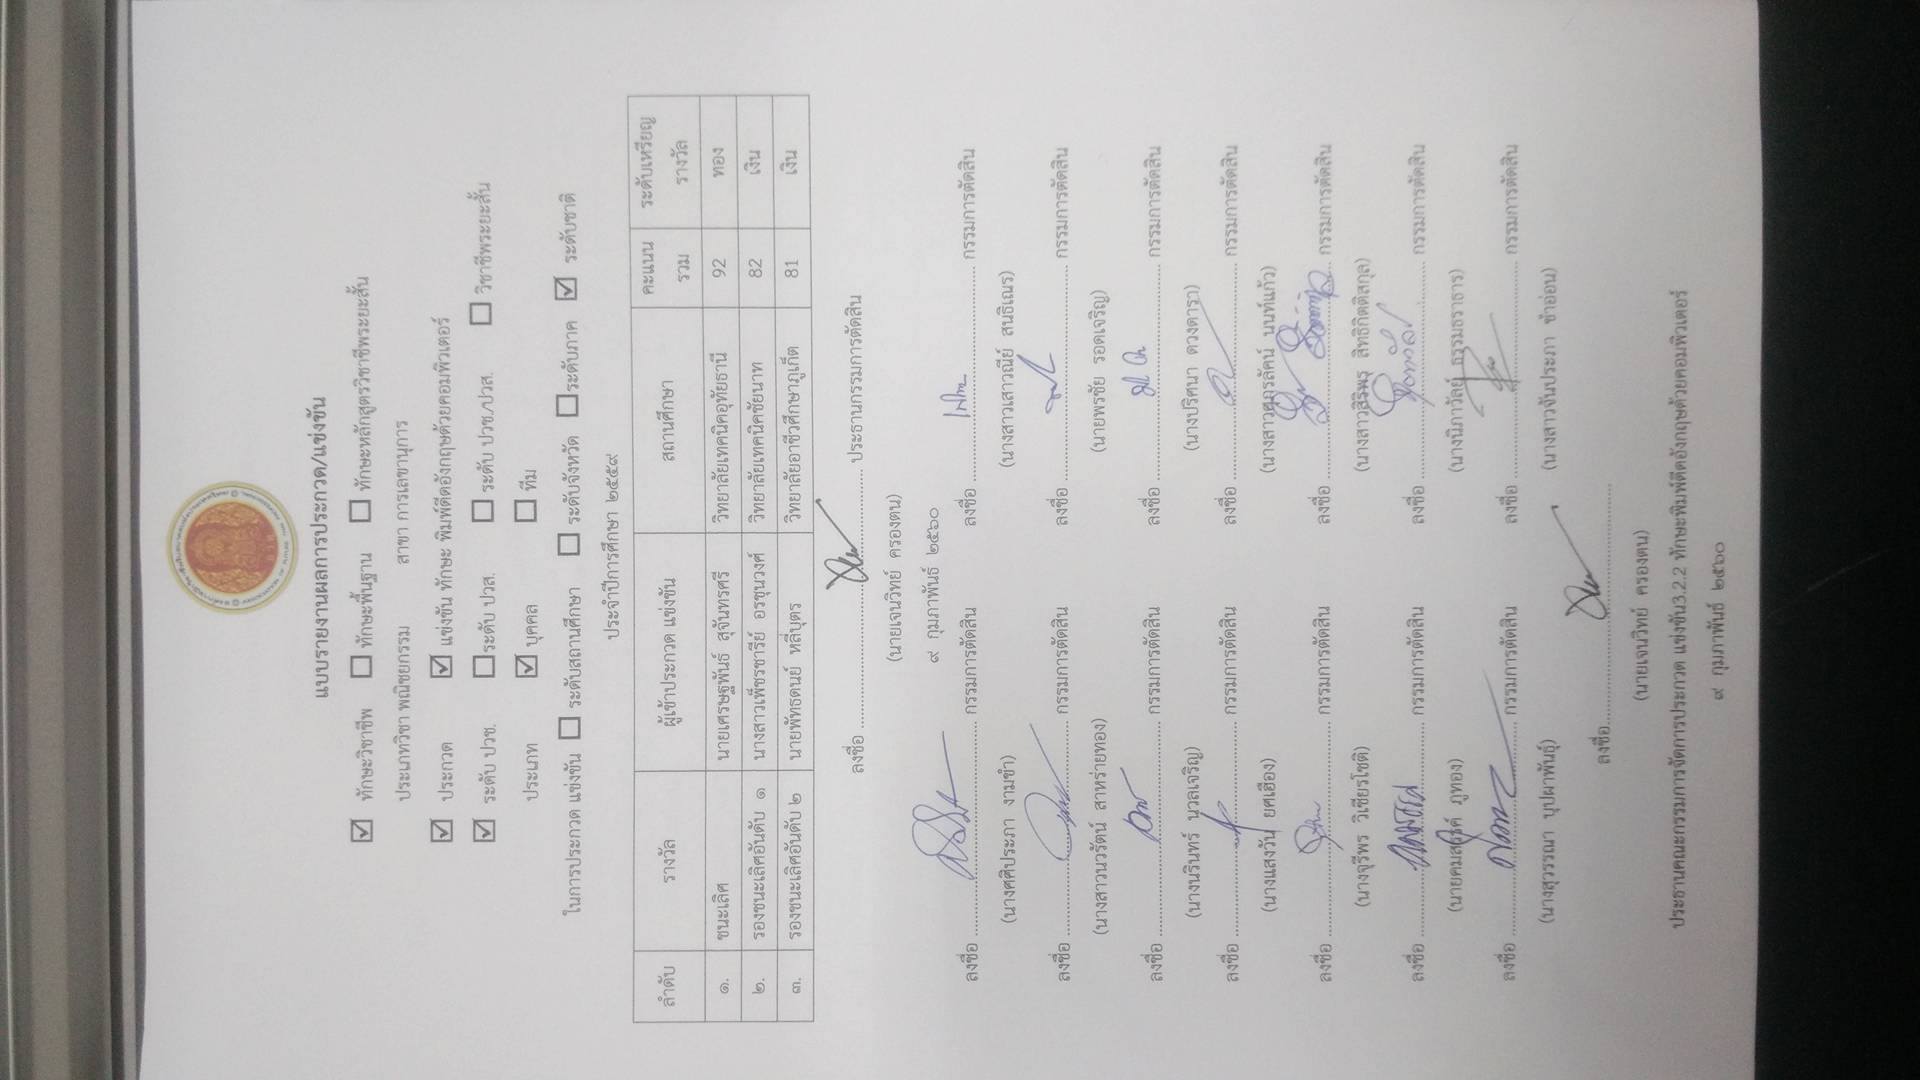 แบบรายงานผลการประกวด/แข่งขัน
☑ ทักษะวิชาชีพ ☐ ทักษะพื้นฐาน ☐ ทักษะหลักสูตรวิชาชีพระยะสั้น
ประเภทวิชา พณิชยกรรม สาขา การเลขานุการ
☑ ประกวด ☑ แข่งขัน ทักษะ พิมพ์ดีดอังกฤษด้วยคอมพิวเตอร์
☑ ระดับ ปวช. ☐ ระดับ ปวส. ☐ ระดับ ปวช./ปวส. ☐ วิชาชีพระยะสั้น
ประเภท ☑ บุคคล ☐ ทีม
ในการประกวด แข่งขัน ☐ ระดับสถานศึกษา ☐ ระดับจังหวัด ☐ ระดับภาค ☑ ระดับชาติ
ประจำปีการศึกษา ๒๕๕๙
ลำดับ รางวัล ผู้เข้าประกวด แข่งขัน สถานศึกษา คะแนนรวม ระดับเหรียญรางวัล
๑. ชนะเลิศ นายเศรษฐพันธ์ สุจันทรศรี วิทยาลัยเทคนิคอุทัยธานี 92 ทอง
๒. รองชนะเลิศอันดับ ๑ นางสาวเพ็ชรชารีย์ อรชุนวงศ์ วิทยาลัยเทคนิคชัยนาท 82 เงิน
๓. รองชนะเลิศอันดับ ๒ นายพัทธดนย์ หลีบุตร วิทยาลัยอาชีวศึกษาภูเก็ต 81 เงิน
ลงชื่อ ........ ประธานกรรมการตัดสิน
(นายเจนวิทย์ ครองตน)
๙ กุมภาพันธ์ ๒๕๖๐
ลงชื่อ ........ กรรมการตัดสิน ลงชื่อ ........ กรรมการตัดสิน
(นางศศิประภา งามขำ) (นางสาวเสาวณีย์ สนธิเณร)
ลงชื่อ ........ กรรมการตัดสิน ลงชื่อ ........ กรรมการตัดสิน
(นางสาวนวรัตน์ สาหร่ายทอง) (นายพรชัย รอดเจริญ)
ลงชื่อ ........ กรรมการตัดสิน ลงชื่อ ........ กรรมการตัดสิน
(นางนรินทร์ นวลเจริญ) (นางปริศนา ดวงดารา)
ลงชื่อ ........ กรรมการตัดสิน ลงชื่อ ........ กรรมการตัดสิน
(นางแสงวัน ยศเฮือง) (นางสาวภูรลัคน์ นนท์แก้ว)
ลงชื่อ ........ กรรมการตัดสิน ลงชื่อ ........ กรรมการตัดสิน
(นางจุรีพร วิเชียรโชติ) (นางสาวสิริพร สิทธิกิตติสกุล)
ลงชื่อ ........ กรรมการตัดสิน ลงชื่อ ........ กรรมการตัดสิน
(นายคมสรรค์ ภูทอง) (นางนิภาวัลย์ ธรรมธราธาร)
ลงชื่อ ........ กรรมการตัดสิน ลงชื่อ ........ กรรมการตัดสิน
(นางสุวรรณา บุปผาพันธุ์) (นางสาวจันประภา ช้าอ่อน)
ลงชื่อ........
(นายเจนวิทย์ ครองตน)
ประธานคณะกรรมการจัดการประกวด แข่งขัน3.2.2 ทักษะพิมพ์ดีดอังกฤษด้วยคอมพิวเตอร์
๙ กุมภาพันธ์ ๒๕๖๐